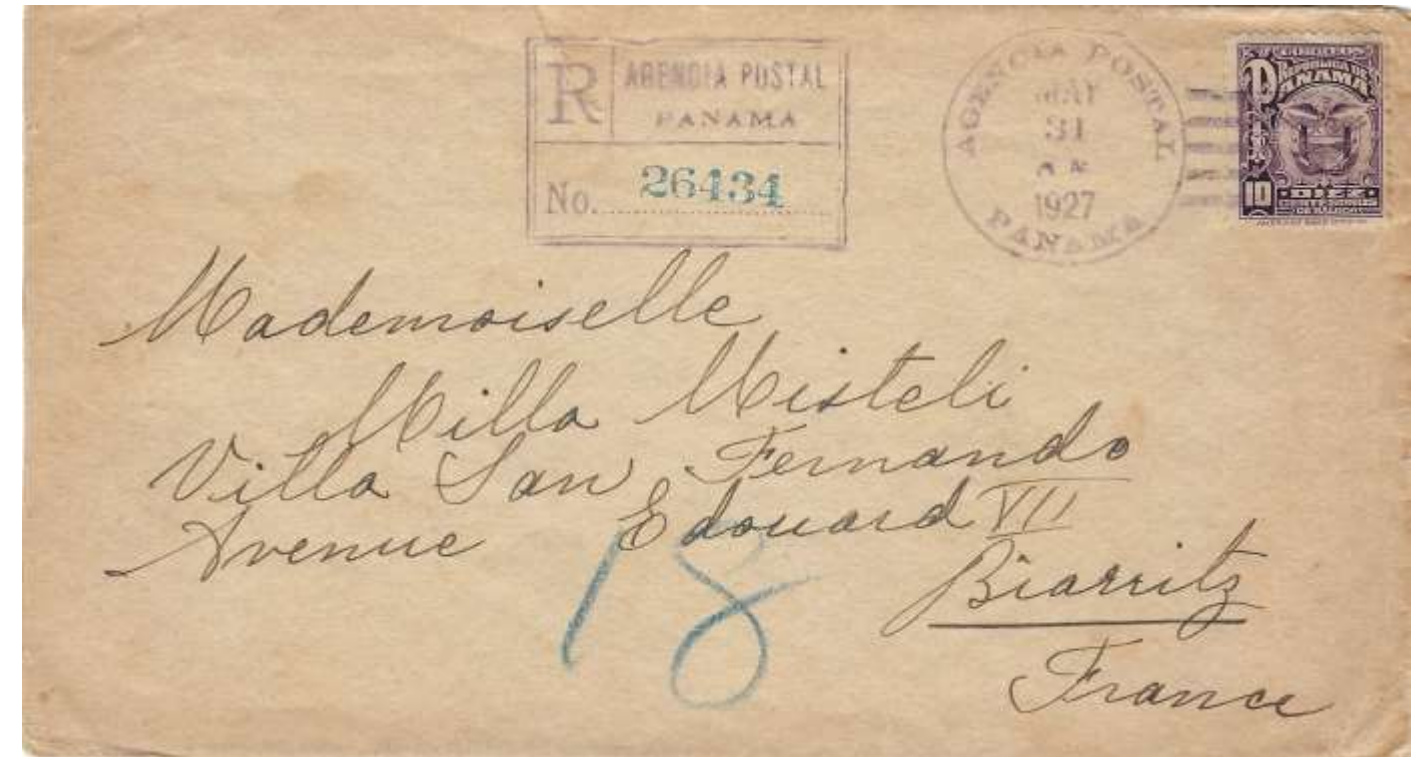 R AGENCIA POSTAL
PANAMA
No. 26434
AGENCIA POSTAL
MAY
31
1927
PANAMA
CORREOS
REPUBLICA DE
PANAMA
10
DIEZ
Mademoiselle
Milla Misteli
Villa San Fernando
Avenue Edouard VII
Biarritz
France
18